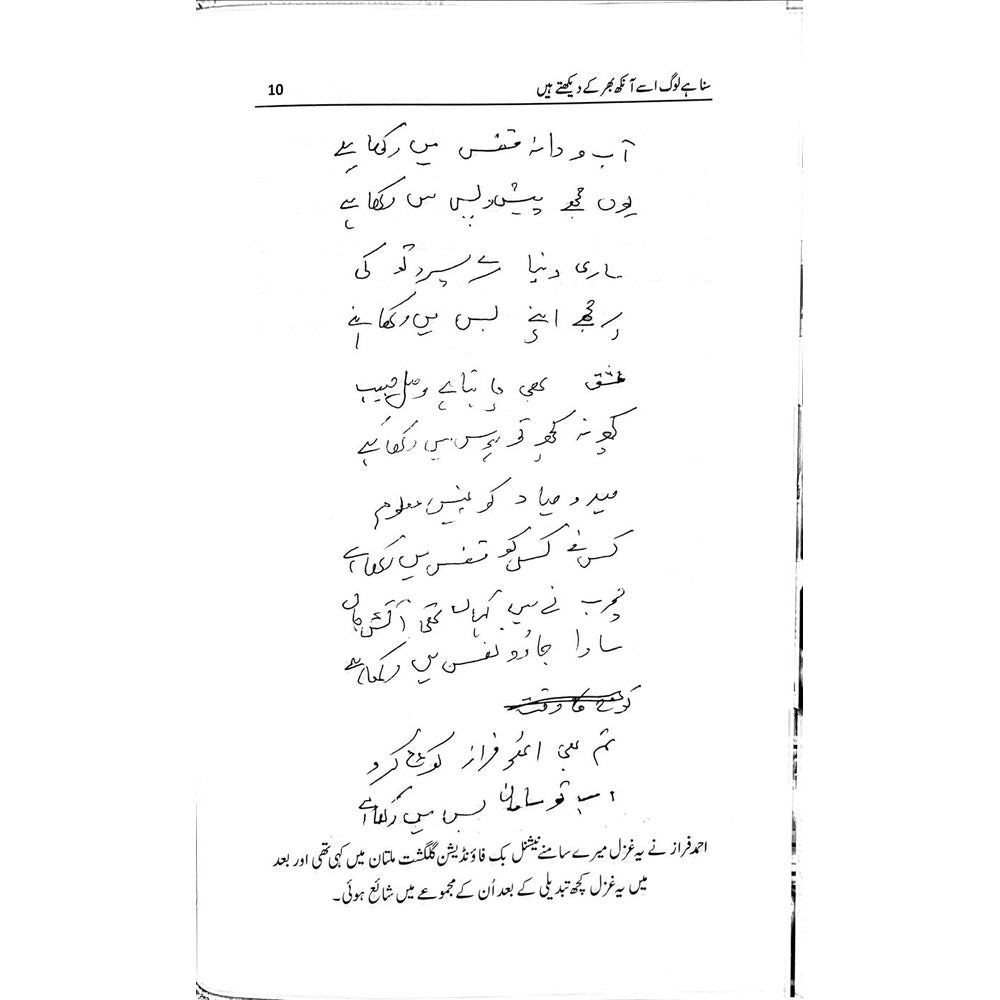 سنا ہے لوگ اسے آنکھ بھر کے دیکھتے ہیں
10
آب و دانہ قفس میں رکھا ہے
یوں مجھے پیش و پس میں رکھا ہے
ساری دنیا کے سپرد تو کی
پر مجھے اپنے بس میں رکھا ہے
عشق بھی مانتا ہے وصل حبیب
کچھ نہ کچھ تو ہوس میں رکھا ہے
صید و صیاد کو نہیں معلوم
کس نے کس کو قفس میں رکھا ہے
چوب نے میں کہاں تھی آتش جاں
سارا جادو نفس میں رکھا ہے
کوچ کا وقت
تم بھی اٹھو فراز کوچ کرو
اب تو سامان بس میں رکھا ہے
احمد فراز نے یہ غزل میرے سامنے نیشنل بک فاؤنڈیشن گلگشت ملتان میں کہی تھی اور بعد
میں یہ غزل کچھ تبدیلی کے بعد اُن کے مجموعے میں شائع ہوئی۔